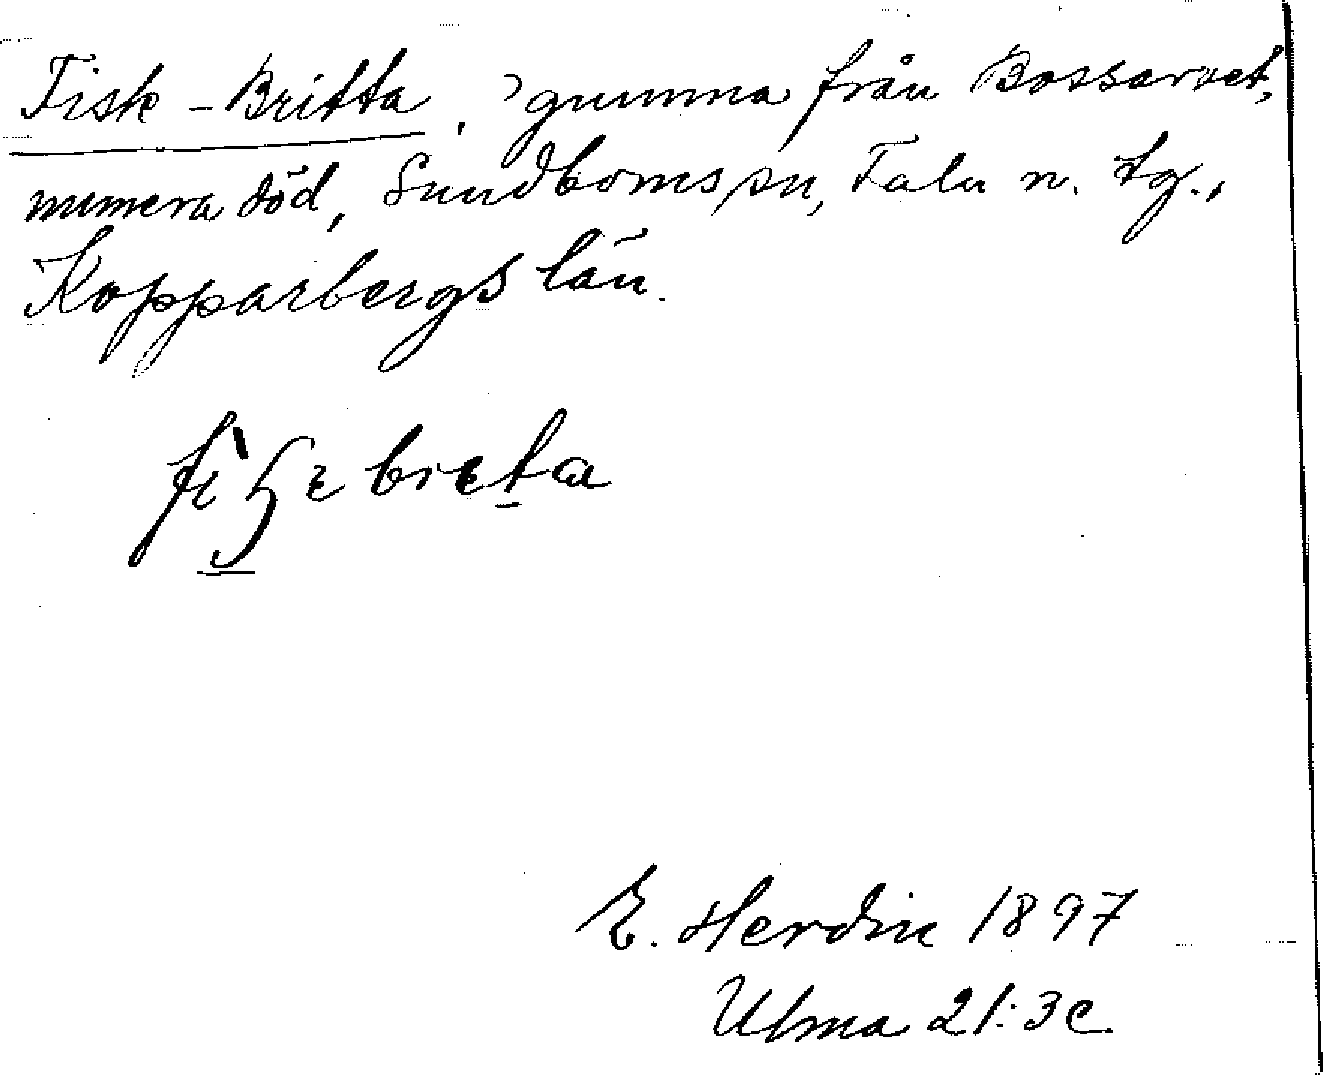 Fisk-Britta, gumma från Bossarvet,
numera död, Sundborns sn, Falu n. tg.,
Kopparbergs län.
E. Herdin 1897
Ulma 21:3c